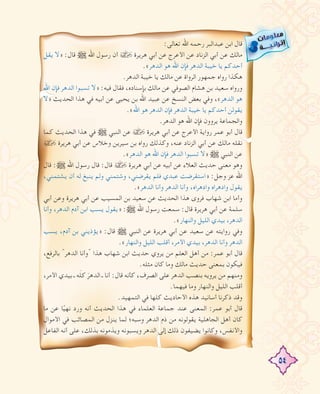 معلومات
إثرائية
قال ابن عبدالبر رحمه الله تعالى:
مالك عن أبي الزناد عن الأعرج عن أبي هريرة ﷺ أن رسول الله ﷺ قال: «لا يقل
أحدكم يا خيبة الدهر فإن الله هو الدهر».
هكذا رواه جمهور الرواة عن مالك يا خيبة الدهر.
ورواه سعيد بن هشام الصوفي عن مالك بإسناده، فقال فيه: «لا تسبوا الدهر فإن الله
هو الدهر»، وفي بعض النسخ عن عبيد الله بن يحيى عن أبيه في هذا الحديث «لا
يقولن أحدكم يا خيبة الدهر فإن الدهر هو الله».
والجماعة يروون فإن الله هو الدهر.
قال أبو عمر رواية الأعرج عن أبي هريرة عن النبي ﷺ في هذا الحديث كما
نقله مالك عن أبي الزناد عنه، وكذلك رواه بن سيرين وخلاس عن أبي هريرة
عن النبي ﷺ «لا تسبوا الدهر فإن الله هو الدهر».
وهو معنى حديث العلاء عن أبيه عن أبي هريرة قال: قال رسول الله ﷺ: قال
الله عز وجل: «استقرضت عبدي فلم يقرضني، وشتمني ولم ينبغ له أن يشتمني،
يقول وادهراه وادهراه، وأنا الدهر وأنا الدهر».
وأما ابن شهاب فروى هذا الحديث عن سعيد بن المسيب عن أبي هريرة وعن أبي
سلمة عن أبي هريرة قال: سمعت رسول الله ﷺ: «يقول يسب ابن آدم الدهر، وأنا
الدهر، بيدي الليل والنهار».
وفي روايته عن سعيد عن أبي هريرة عن النبي ﷺ قال: «يؤذيني بن آدم، يسب
الدهر وأنا الدهر، بيدي الأمر، أقلب الليل والنهار».
قال أبو عمر: من أهل العلم من يروي حديث ابن شهاب هذا "وأنا الدهر" بالرفع،
فيكون بمعنى حديث مالك وما كان مثله.
ومنهم من يرويه بنصب الدهر على الصرف، كأنه قال: أنا الدهرَ كله، بيدي الأمر،
أقلب الليل والنهار وما فيهما.
وقد ذكرنا أسانيد هذه الأحاديث كلها في التمهيد.
قال أبو عمر: المعنى عند جماعة العلماء، في هذا الحديث أنه ورد نهيًا عن ما
كان أهل الجاهلية يقولونه من ذم الدهر وسبه؛ لما ينزل من المصائب في الأموال
والأنفس، وكانوا يضيفون ذلك إلى الدهر ويسبونه ويذمونه بذلك، على أنه الفاعل
٥٤